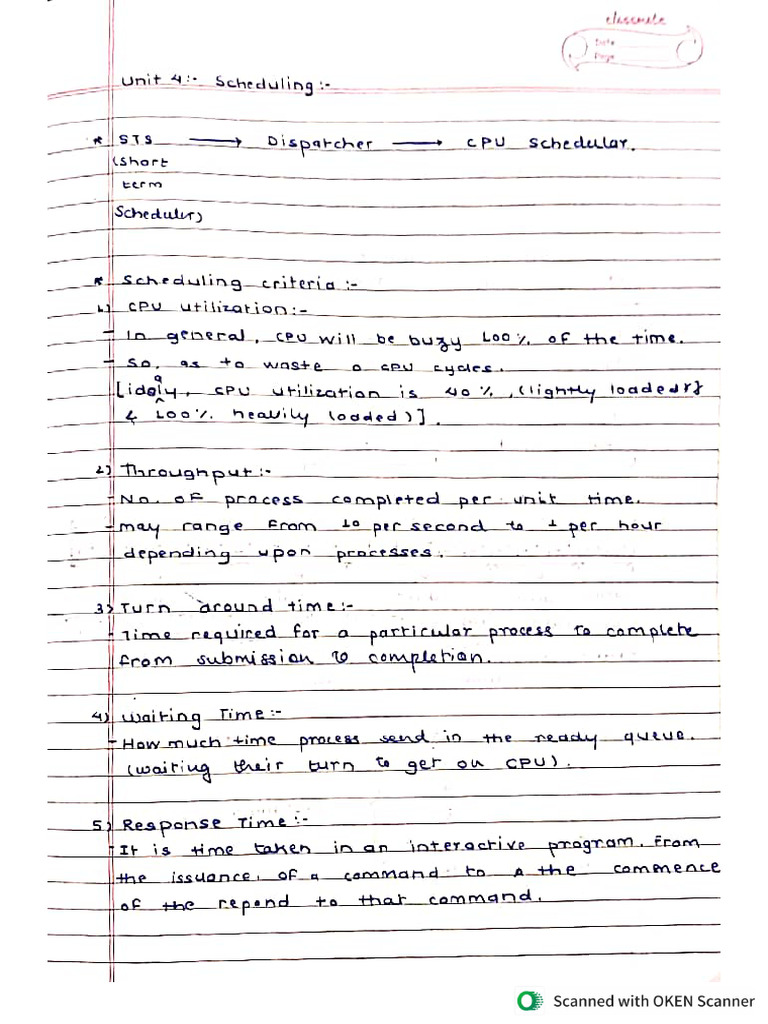 classmate
Date
Page
Unit 4:- Scheduling:-
* STS → Dispatcher → CPU Schedular.
(Short
term
Scheduler)
* Scheduling criteria :-
1) CPU utilization:-
- In general, CPU will be buzy 100% of the time.
- So, as to waste 0 CPU cycles.
[idealy, CPU utilization is 40%, (lightly loaded)
& 100% heavily loaded)].
2) Throughput:-
- No. of process completed per unit time.
- may range from 10 per second to 1 per hour
depending upon processes.
3) Turn around time:-
- Time required for a particular process to complete
from submission to completion.
4) Waiting Time:-
- How much time process send in the ready queue.
(waiting their turn to get on CPU).
5) Response Time:-
- It is time taken in an interactive program. From
the issuance, of a command to the commence
of the repond to that command.
Scanned with OKEN Scanner